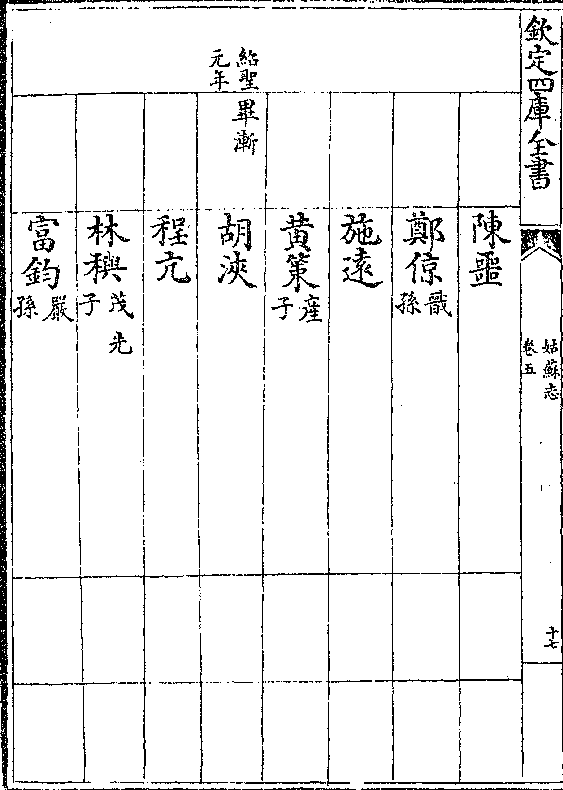 欽定四庫全書
姑蘇志
卷五
十七
陳噩
鄭倞戩孫
施遠
黄策産子
紹聖元年
畢漸
胡浹
程亢
林穎茂先子
富鈞嚴孫